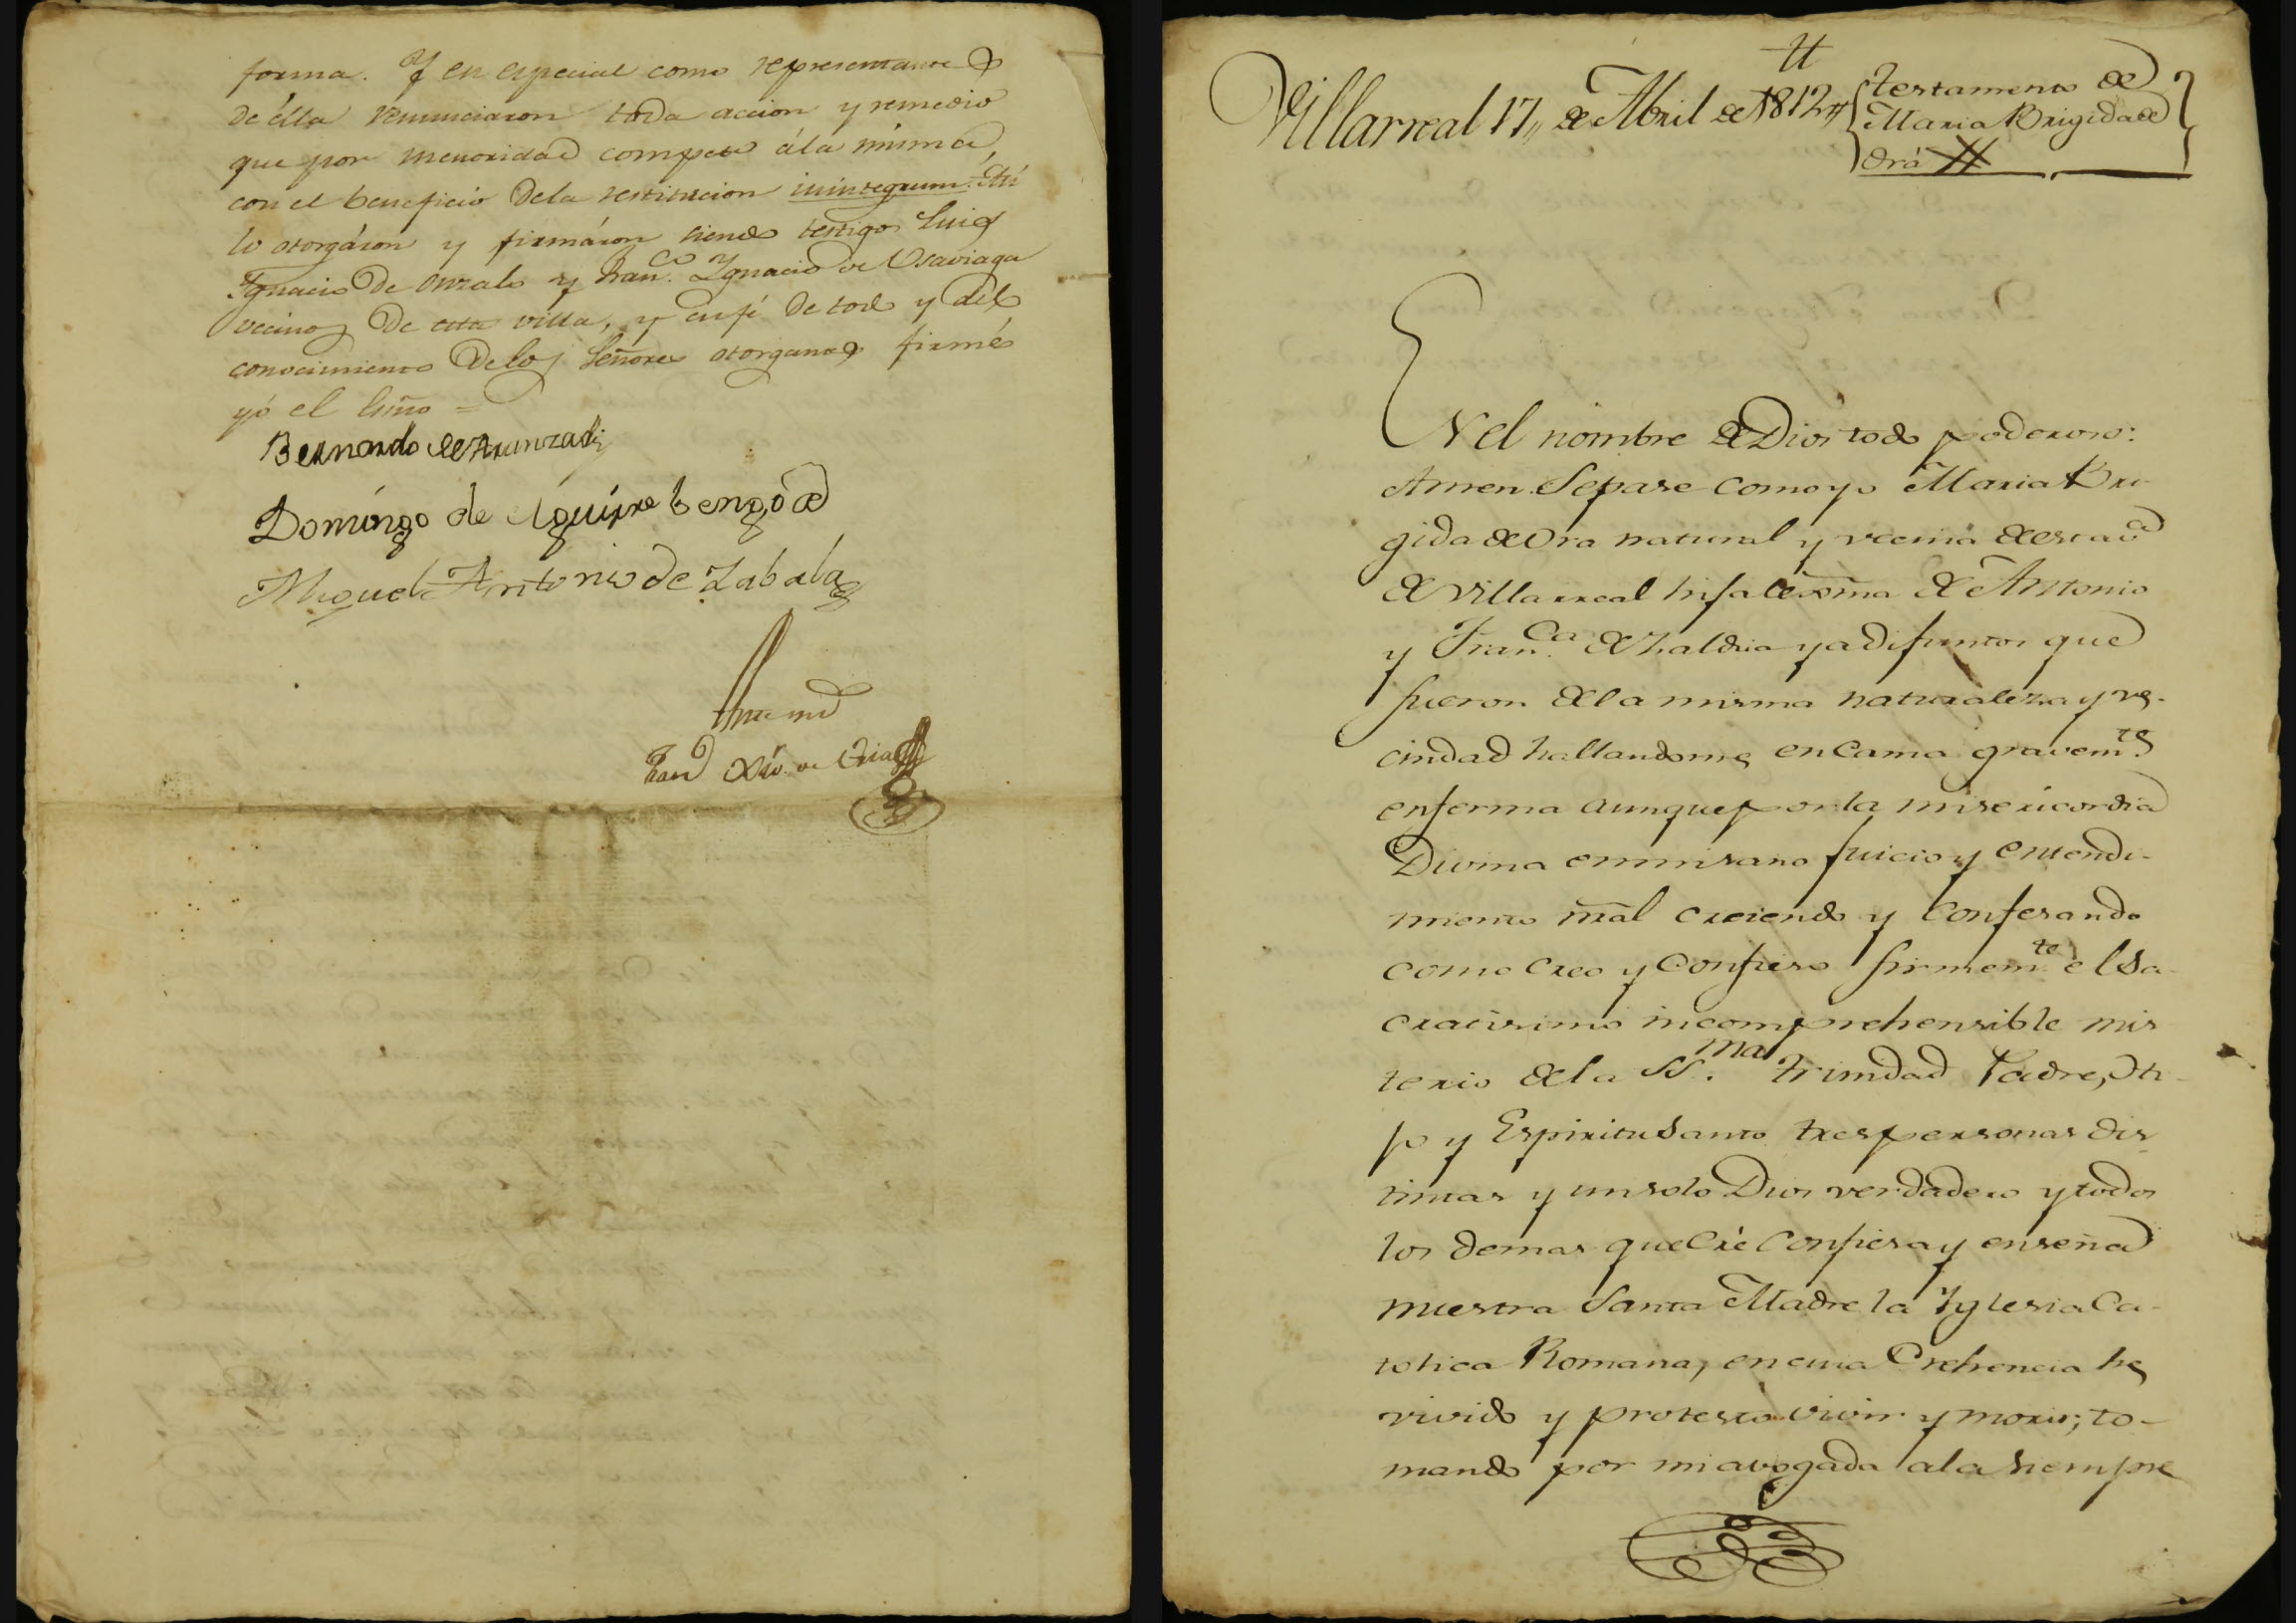 forma. Y en especial como representante
de élla renunciaron toda accion y remedio
que por menoridad compete álá misma,
con el beneficio dela restitucion inintegrum. Así
lo otorgáron y firmáron siendo testigos Luis
Ygnacio de y Fran.co Ygnacio de Usaviaga
vecinos de esta villa, y enfé de todo y del
conocimiento delos Señores otorgantes firmé
yó el Esño =
Bernardo de Aranzadi
Domingo de Aguirrebengoa
Miguel Antonio de Zabala
Ante mi
Villarreal 17,, de Abril de 1812
Testamento de
Maria Brigida de
Orá
EN el nombre de Dios todo poderoso:
Amen. Sepase como yo Maria Bri-
gida de Ora natural y vecina de esta va
de Villarreal hija lexma de Antonio
y Fran.ca de Zaldua ya difuntos que
fueron dela misma naturaleza y ve-
cindad hallandome en Cama gravem.te
enferma aunque por la misericordia
Divina enmisano Juicio y entendi-
miento nral creiendo y Confesando
como Creo y Confieso firmem.te el Sa-
cratisimo incomprehensible mis
terio dela SS.ma Trinidad Padre, Hi-
jo y Espiritu Santo tres personas dis-
tintas y unsolo Dios verdadero y todos
los demas que Cré Confiesa y enseña
nuestra Santa Madre la Yglesia Ca-
tolica Romana, en cuia Crehencia he
vivido y protesto vivir y morir; to-
mando por mi avogada ala siempre